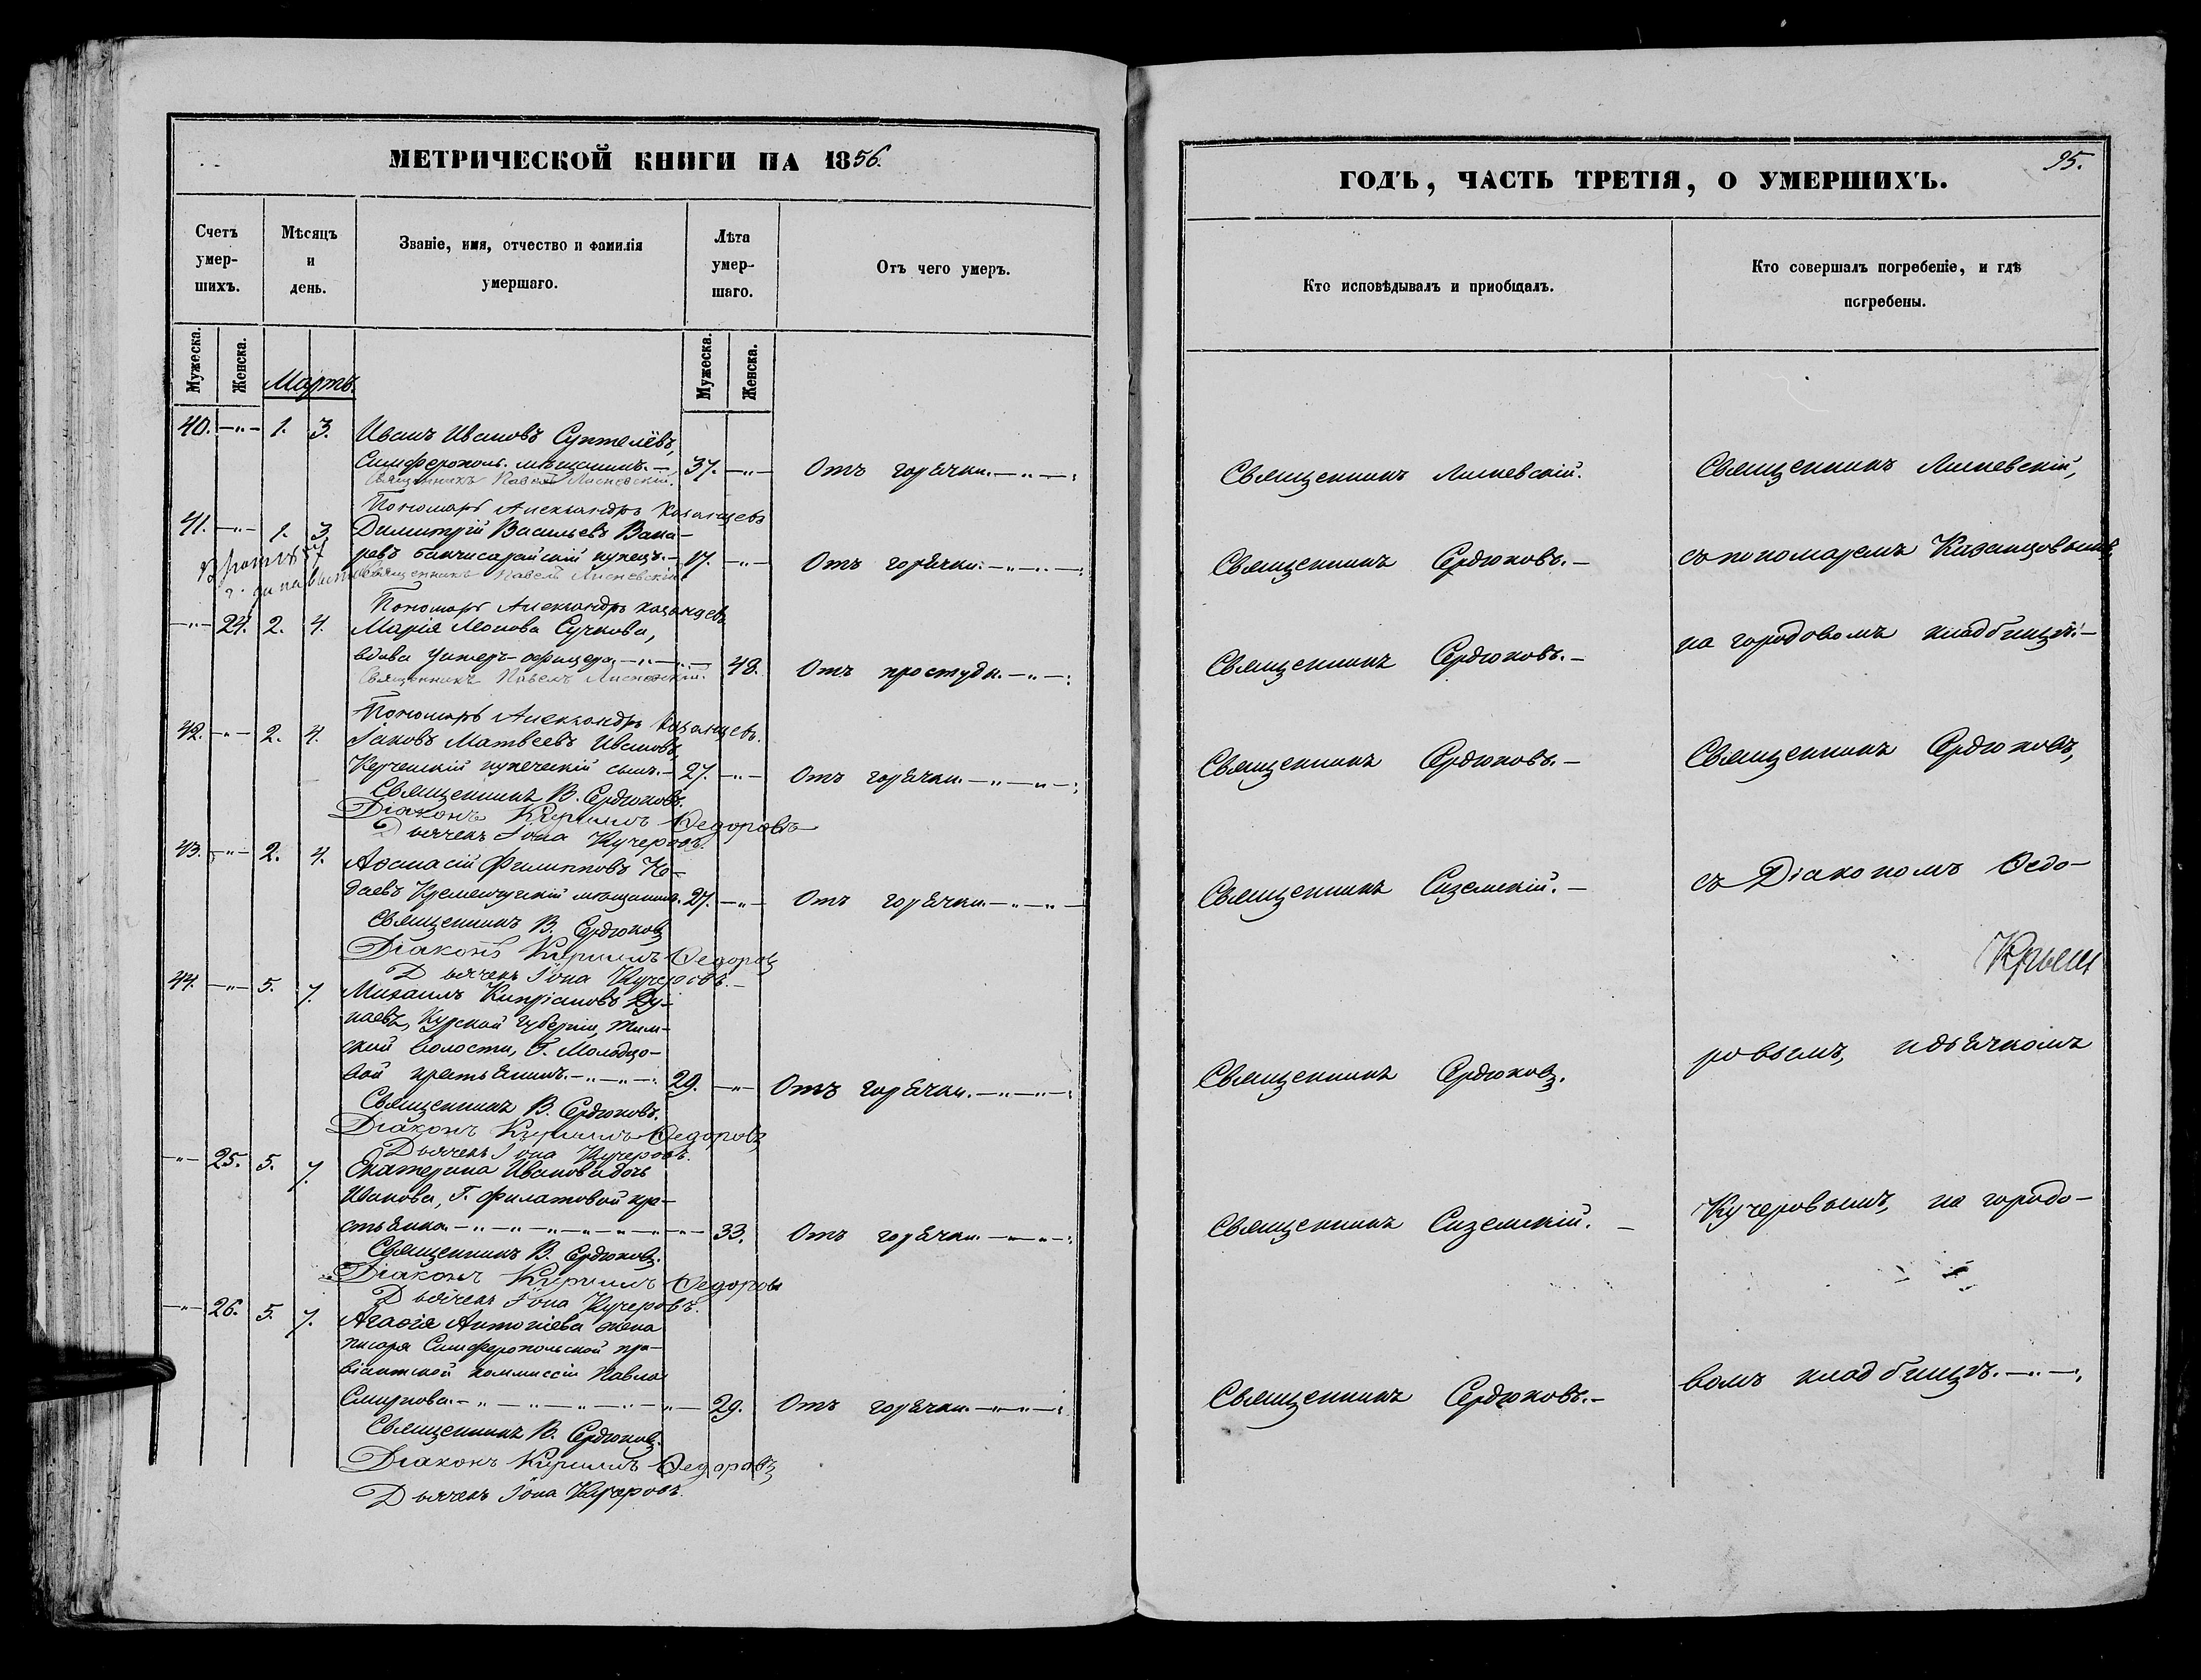 МЕТРИЧЕСКОЙ КНИГИ НА 1856.
Счетъ умер-шихъ.
Мѣсяцъ и день.
Званіе, имя, отчество и фамилія умершаго.
Лѣта умер-шаго.
Отъ чего умеръ.
Мужеска.
Женска.
Мартъ.
Мужеска.
Женска.
40. —"— 1. 3. Иванъ Ивановъ
Симферополь. мѣщанинъ.— 37. —"— Отъ горячки.—"—:
Священникъ Павелъ Лисневскій.
Пономарь Александръ Казанцевъ
41. —"— 1. 3. Димитрій Васильевъ Вана-
ревъ бахчисарайскій купецъ.— 17. —"— Отъ горячки.—"—"—:
Священникъ Павелъ Лисневскій
Пономарь Александръ Казанцевъ
—"— 24. 2. 4. Марія Леонова Сучкова,
вдова унтеръ-офицера.—"—"— 48. Отъ простуды.—"—:
Священникъ Павелъ Лисневскій.
Пономарь Александръ Казанцевъ.
42. —"— 2. 4. Іаковъ Матвеевъ Ивановъ,
Керченскій купеческій сынъ.— 27. —"— Отъ горячки.—"—"—:
Священникъ В. Сердюковъ.
Діаконъ Кириллъ Ѳедоровъ
Дьячекъ Іона Кучеровъ.
43. —"— 2. 4. Аѳанасій Филипповъ
даевъ Кременчугскій мѣщанинъ. 27. —"— Отъ горячки—"—"—
Священникъ В. Сердюковъ
Діаконъ Кириллъ Ѳедоровъ
Дьячекъ Іона Кучеровъ.—
44. —"— 5. 7. Михаилъ Кипріановъ Ду-
наевъ, Курской губерніи, Тим-
ской волости, Г. Молодцо-
вой крестьянинъ.—"—"—: 29. —"— Отъ горячки.—"—"—:
Священникъ В. Сердюковъ.
Діаконъ Кириллъ Ѳедоровъ
Дьячекъ Іона Кучеровъ.
—"— 25. 5. 7. Екатерина Иванова дочь
Иванова, Г. Филатовой кре-
стьянка.—"—"—"—"—"—"— 33. Отъ горячки.—"—"—:
Священникъ В. Сердюковъ.
Діаконъ Кириллъ Ѳедоровъ
Дьячекъ Іона Кучеровъ.
—"— 26. 5. 7. Агаѳія Антоніева жена
писаря Симферопольской про-
віантской коммиссіи Павла
Смирнова.—"—"—"—"—"— 29. Отъ горячки.—"—"—:
Священникъ В. Сердюковъ.
Діаконъ Кириллъ Ѳедоровъ
Дьячекъ Іона Кучеровъ.
95.
ГОДЪ, ЧАСТЬ ТРЕТІЯ, О УМЕРШИХЪ.
Кто исповѣдывалъ и пріобщалъ.
Кто совершалъ погребеніе, и гдѣ погребены.
Священникъ Лисневскій. Священникъ Лисневскій,
Священникъ Сердюковъ.— съ пономаремъ Казанцовымъ,
Священникъ Сердюковъ.— на городовомъ кладбищѣ.—
Священникъ Сердюковъ.— Священникъ Сердюковъ,
Священникъ Сиземскій.— съ Діакономъ Ѳедо-
Священникъ Сердюковъ. ровымъ, и дьячкомъ
Священникъ Сиземскій.— Кучеровымъ, на городо-
Священникъ Сердюковъ.— вомъ кладбищѣ.—"—: